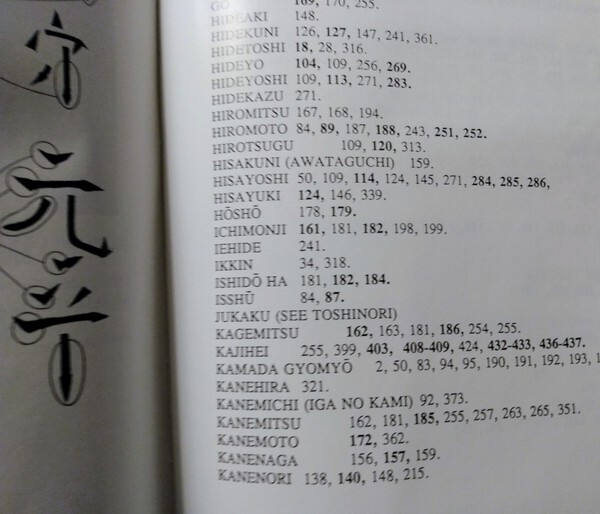 元
GO 169, 170, 255.
HIDEAKI 148.
HIDEKUNI 126, 127, 147, 241, 361.
HIDETOSHI 18, 28, 316.
HIDEYO 104, 109, 256, 269.
HIDEYOSHI 109, 113, 271, 283.
HIDEKAZU 271.
HIROMITSU 167, 168, 194.
HIROMOTO 84, 89, 187, 188, 243, 251, 252.
HIROTSUGU 109, 120, 313.
HISAKUNI (AWATAGUCHI) 159.
HISAYOSHI 50, 109, 114, 124, 145, 271, 284, 285, 286,
HISAYUKI 124, 146, 339.
HŌSHŌ 178, 179.
ICHIMONJI 161, 181, 182, 198, 199.
IEHIDE 241.
IKKIN 34, 318.
ISHIDŌ HA 181, 182, 184.
ISSHŪ 84, 87.
JUKAKU (SEE TOSHINORI)
KAGEMITSU 162, 163, 181, 186, 254, 255.
KAJIHEI 255, 399, 403, 408-409, 424, 432-433, 436-437.
KAMADA GYOMYŌ 2, 50, 83, 94, 95, 190, 191, 192, 193, 1
KANEHIRA 321.
KANEMICHI (IGA NO KAMI) 92, 373.
KANEMITSU 162, 181, 185, 255, 257, 263, 265, 351.
KANEMOTO 172, 362.
KANENAGA 156, 157, 159.
KANENORI 138, 140, 148, 215.